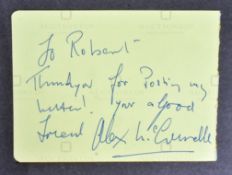 To Robert
Thankyou for Posting my
letter! your a Good
Friend Alex